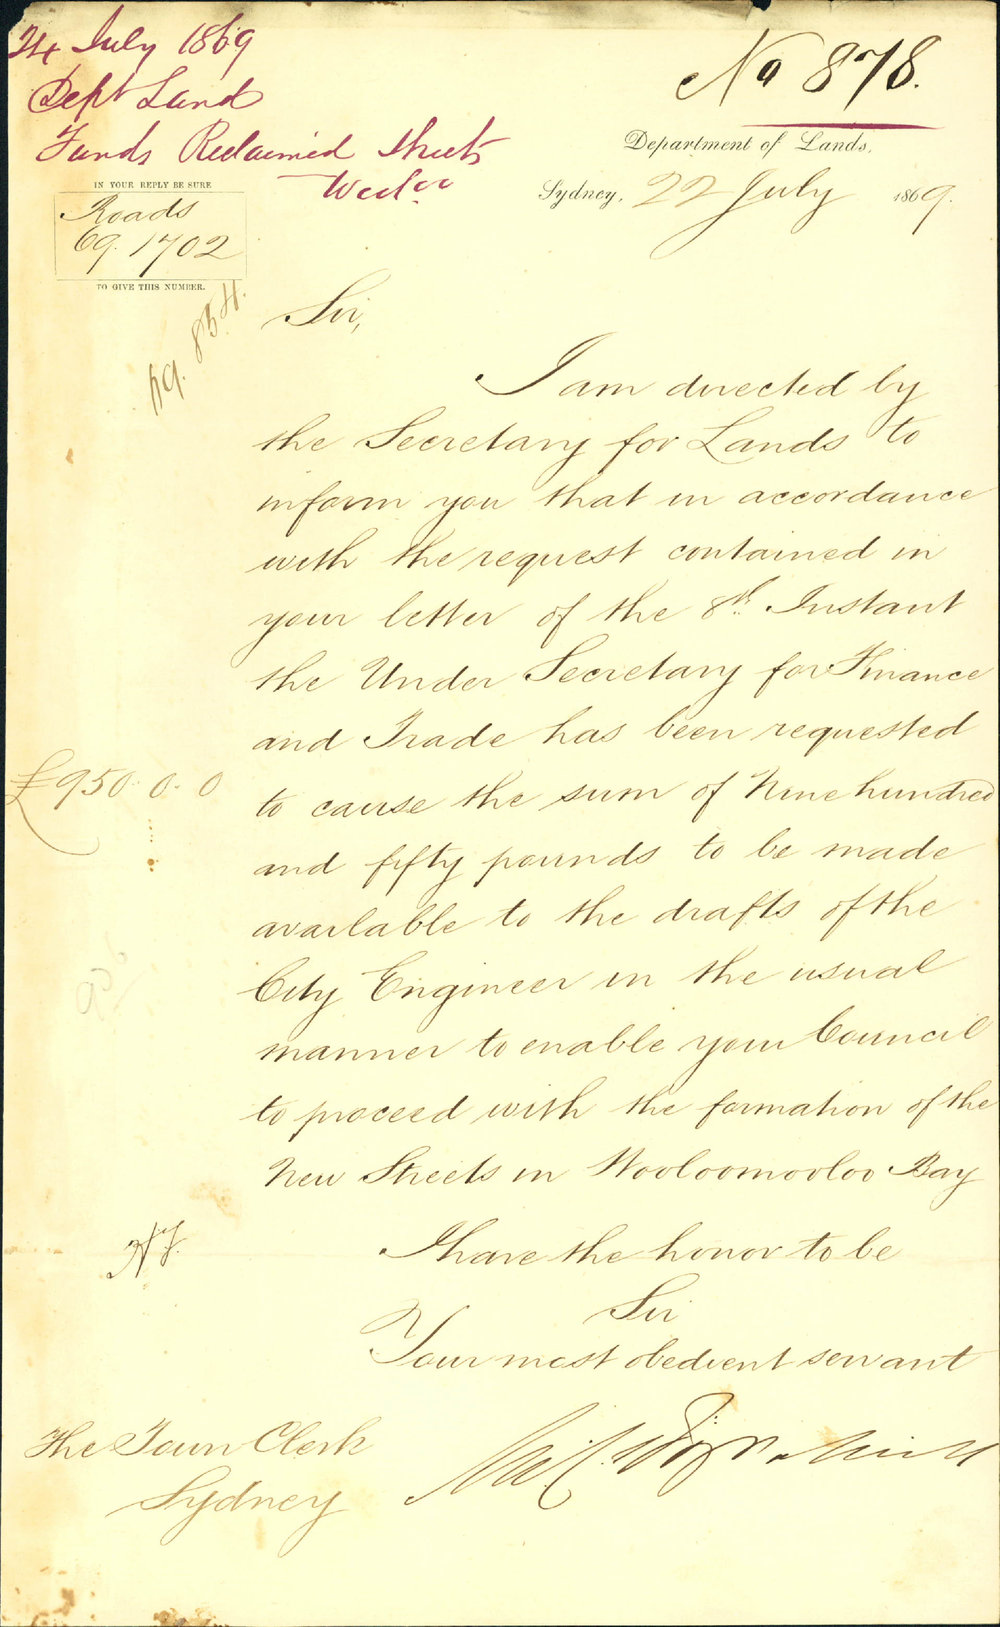 24 July 1869
Dept Land
Funds Reclaimed Streets
W'loo
No 878.
Department of Lands,
Sydney, 22 July 1869.
IN YOUR REPLY BE SURE
Roads
69.1702
TO GIVE THIS NUMBER.
Sir,
I am directed by
the Secretary for Lands to
inform you that in accordance
with the request contained in
your letter of the 8th. Instant
the Under Secretary for Finance
and Trade has been requested
£950. 0. 0
to cause the sum of Nine hundred
and fifty pounds to be made
available to the drafts of the
City Engineer in the usual
manner to enable your Council
to proceed with the formation of the
New Streets in Wooloomooloo Bay
I have the honor to be
Sir
Your most obedient servant
The Town Clerk
Sydney